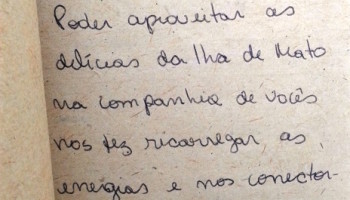 Poder aproveitar as
delícias da Ilha de Mato
na companhia de vocês
nos fez ricarregar as
energias e nos conector-